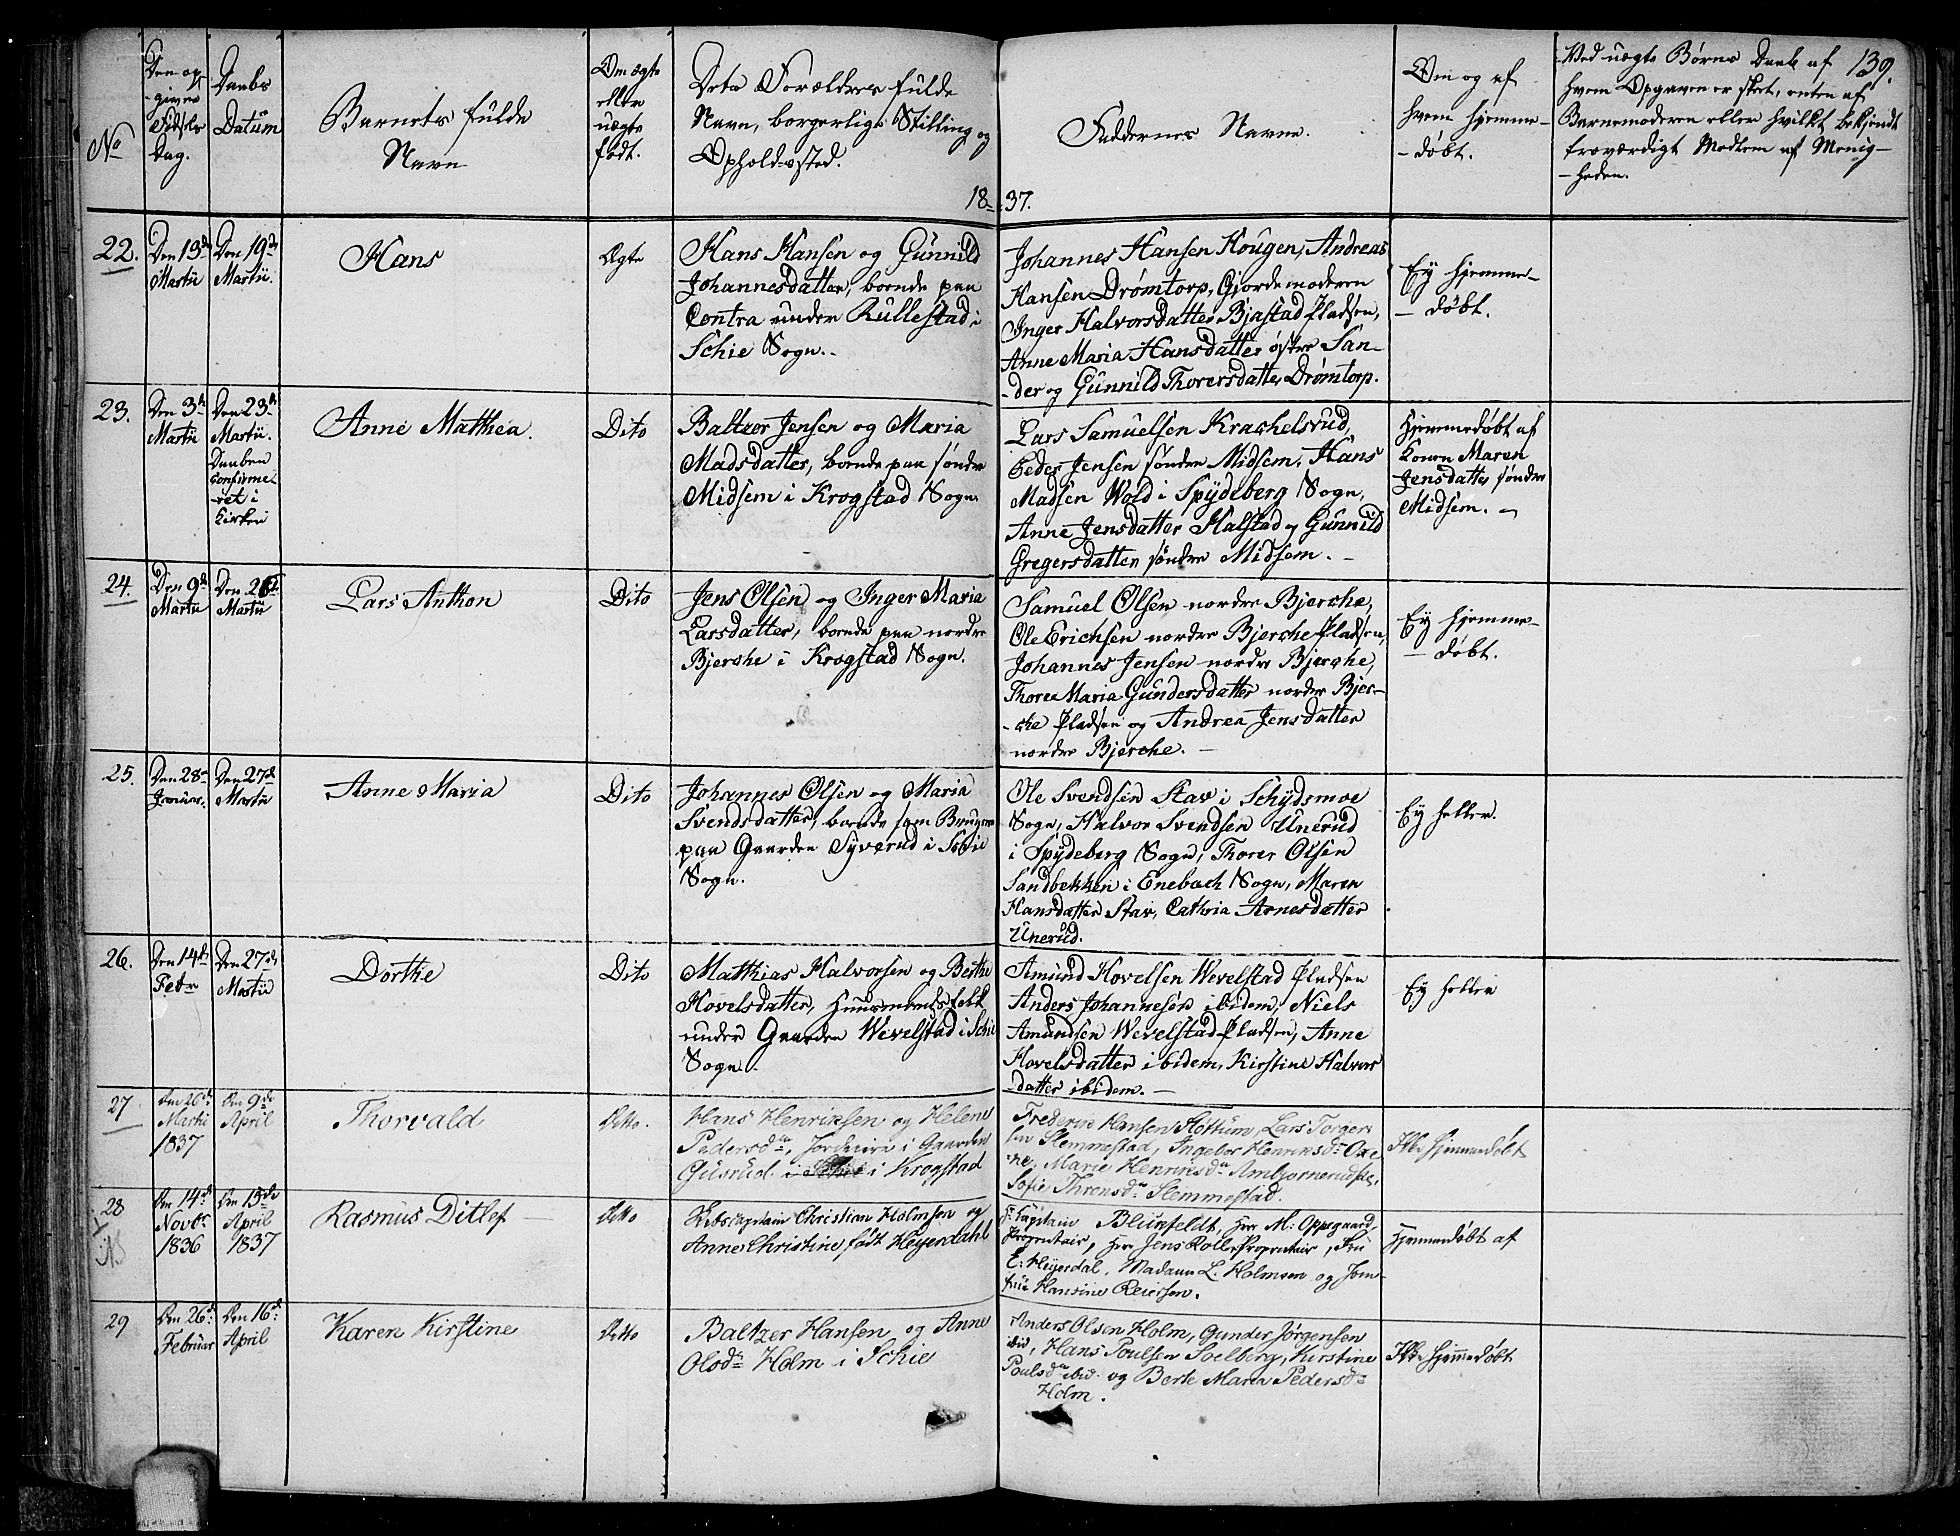 139.
No
Den op-
-givne
Fødsels
Dag.
Daabs
Datum
Barnets fulde
Navn
Om ægte
eller
uægte
født.
Dets Forældres fulde
Navn, borgerlige Stilling og
Opholdssted.
Faddernes Navne.
Om og af
hvem hjemme-
-døbt.
Ved uægte Børns Daab af
hvem Opgaven er skeet, enten af
Barnemoderen eller hvilket bekjendt
troværdigt Medlem af Menig-
-heden.
18 37.
22.
Den 13de
Martii
Den 19de
Martii.
Hans
Ægte
Hans Hansen og Gunnild
Johannesdatter, boende paa
Contra under Rullestad i
Schie Sogn.
Johannes Hansen Hougen, Andreas
Hansen Drømtorp, Gjordemoderen
Inger Halvorsdatter Bjastad Pladsen,
Anne Maria Hansdatter østre San-
-der og Gunnild Thorersdatter Drømtorp.
Ey hjemme-
-døbt.
23.
Den 3de
Martii
Den 23de
Martii.
Daaben
confirme-
-ret i
Kirken
Anne Matthea.
Dito
Baltzer Jensen og Maria
Madsdatter, boende paa søndre
Midsem i Krogstad Sogn.
Lars Samuelsen Krachelsrud,
Peder Jensen søndre Midsem, Hans
Madsen Wold i Spydeberg Sogn,
Anne Jensdatter Halstad og Gunnild
Gregersdatter søndre Midsem. -
Hjemmedøbt af
Konen Maren
Jensdatter søndre
Midsem.
24.
Den 9de
Martii
Den 26de
Martii
Lars Anthon
Dito
Jens Olsen og Inger Maria
Larsdatter, boende paa nordre
Bjerche i Krogstad Sogn.
Samuel Olsen nordre Bjerche,
Ole Erichsen nordre Bjerche Pladsen,
Johannes Jensen nordre Bjerche,
Thorea Maria Gundersdatter nordre Bjer-
-che Pladsen og Andrea Jensdatter
nordre Bjerche. -
Ey hjemme-
-døbt.
25.
Den 28de
Januar.
Den 27de
Martii
Anne Maria
Dito
Johannes Olsen og Maria
Svendsdatter, boende som Brugere
paa Gaarden Syverud i Schie
Sogn.
Ole Svendsen Stav i Schydsmoe
Sogn, Halvor Svendsen Unerud
i Spydeberg Sogn, Thorer Olsen
Sandbekken i Enebach Sogn, Maren
Hansdatter Stav, Cathria Arnesdatter
Unerud.
Ey heller.
26.
Den 14de
Febr
Den 27de
Martii
Dorthe
Dito
Matthias Halvorsen og Berthe
Hovelsdatter, Huusmandsfolk
under Gaarden Wevelstad i Schie
Sogn.
Amund Hovelsen Wevelstad Pladsen
Anders Johannesen ibidem, Niels
Amundsen Wevelstad Pladsen, Anne
Hovelsdatter ibidem, Kirstine Halvors
-datter ibidem. -
Ey heller
27
Den 20de
Martii
1837
Den 9de
April
Thorvald
Ditto.
Hans Henriksen og Helene
Pedersdr, i Gaarden
Gusrud i Schie i Krogstad
Frederik Hansen Slottum, Lars Torger-
sen Slemmestad, Ingebor Henriksdr Oxe
ne, Marie Henriksdr
Sofie Thronsdr Slemmestad.
Ikke hjemmedøbt
28
NB
Den 14de
Novbr
1836
Den 15de
April
1837
Rasmus Ditlef
Ditto
Skibscapitain Christian Holmsen og
Anne Christine, født Heyerdahl
Hr. Capitain Blunfeldt, Herr M: Oppegaard,
Proprietair, Herr Jens Roll Proprietair, Fru
E: Heyerdal, Madame L. Holmsen og Jom-
frue Hansine Reiersen.
Hjemmedøbt af
29
Den 26de
Februar
Den 16de
April
Karen Kirstine
Ditto
Baltzer Hansen og Anne
Olsdr Holm i Schie
Anders Olsen Holm, Gunder Jørgensen
ibid, Hans Poulsen Soelberg, Kirstine
Poulsdr ibid. og Berte Maria Pedersdr
Holm.
Ikke hjemmedøbt